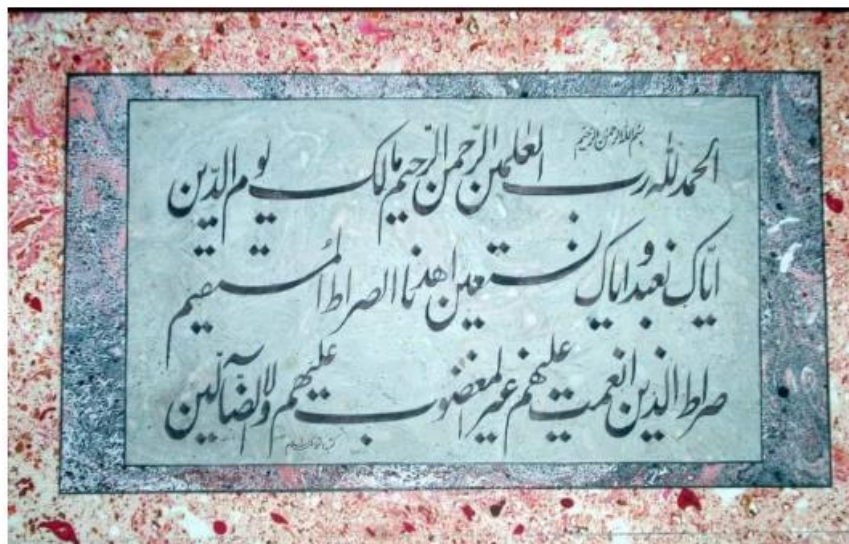 بسم الله الرحمن الرحیم
الحمد لله رب العٰلمین الرّحمن الرّحیم مالک یوم الدّین
ایّاک نعبد و ایاک نستعین اهدنا الصراط المُستقیم
صراط الذین انعمت علیهم غیر المغضوب علیهم ولا الضآلّین